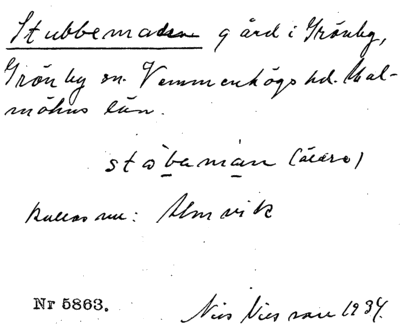 Stubbeman gård i Grönby,
Grönby sn. Vemmenhögs hd. Mal-
möhus län.
stobaman (äldre)
kallas nu: Almvik
Nr 5863.
Nils Nilsson 1934.